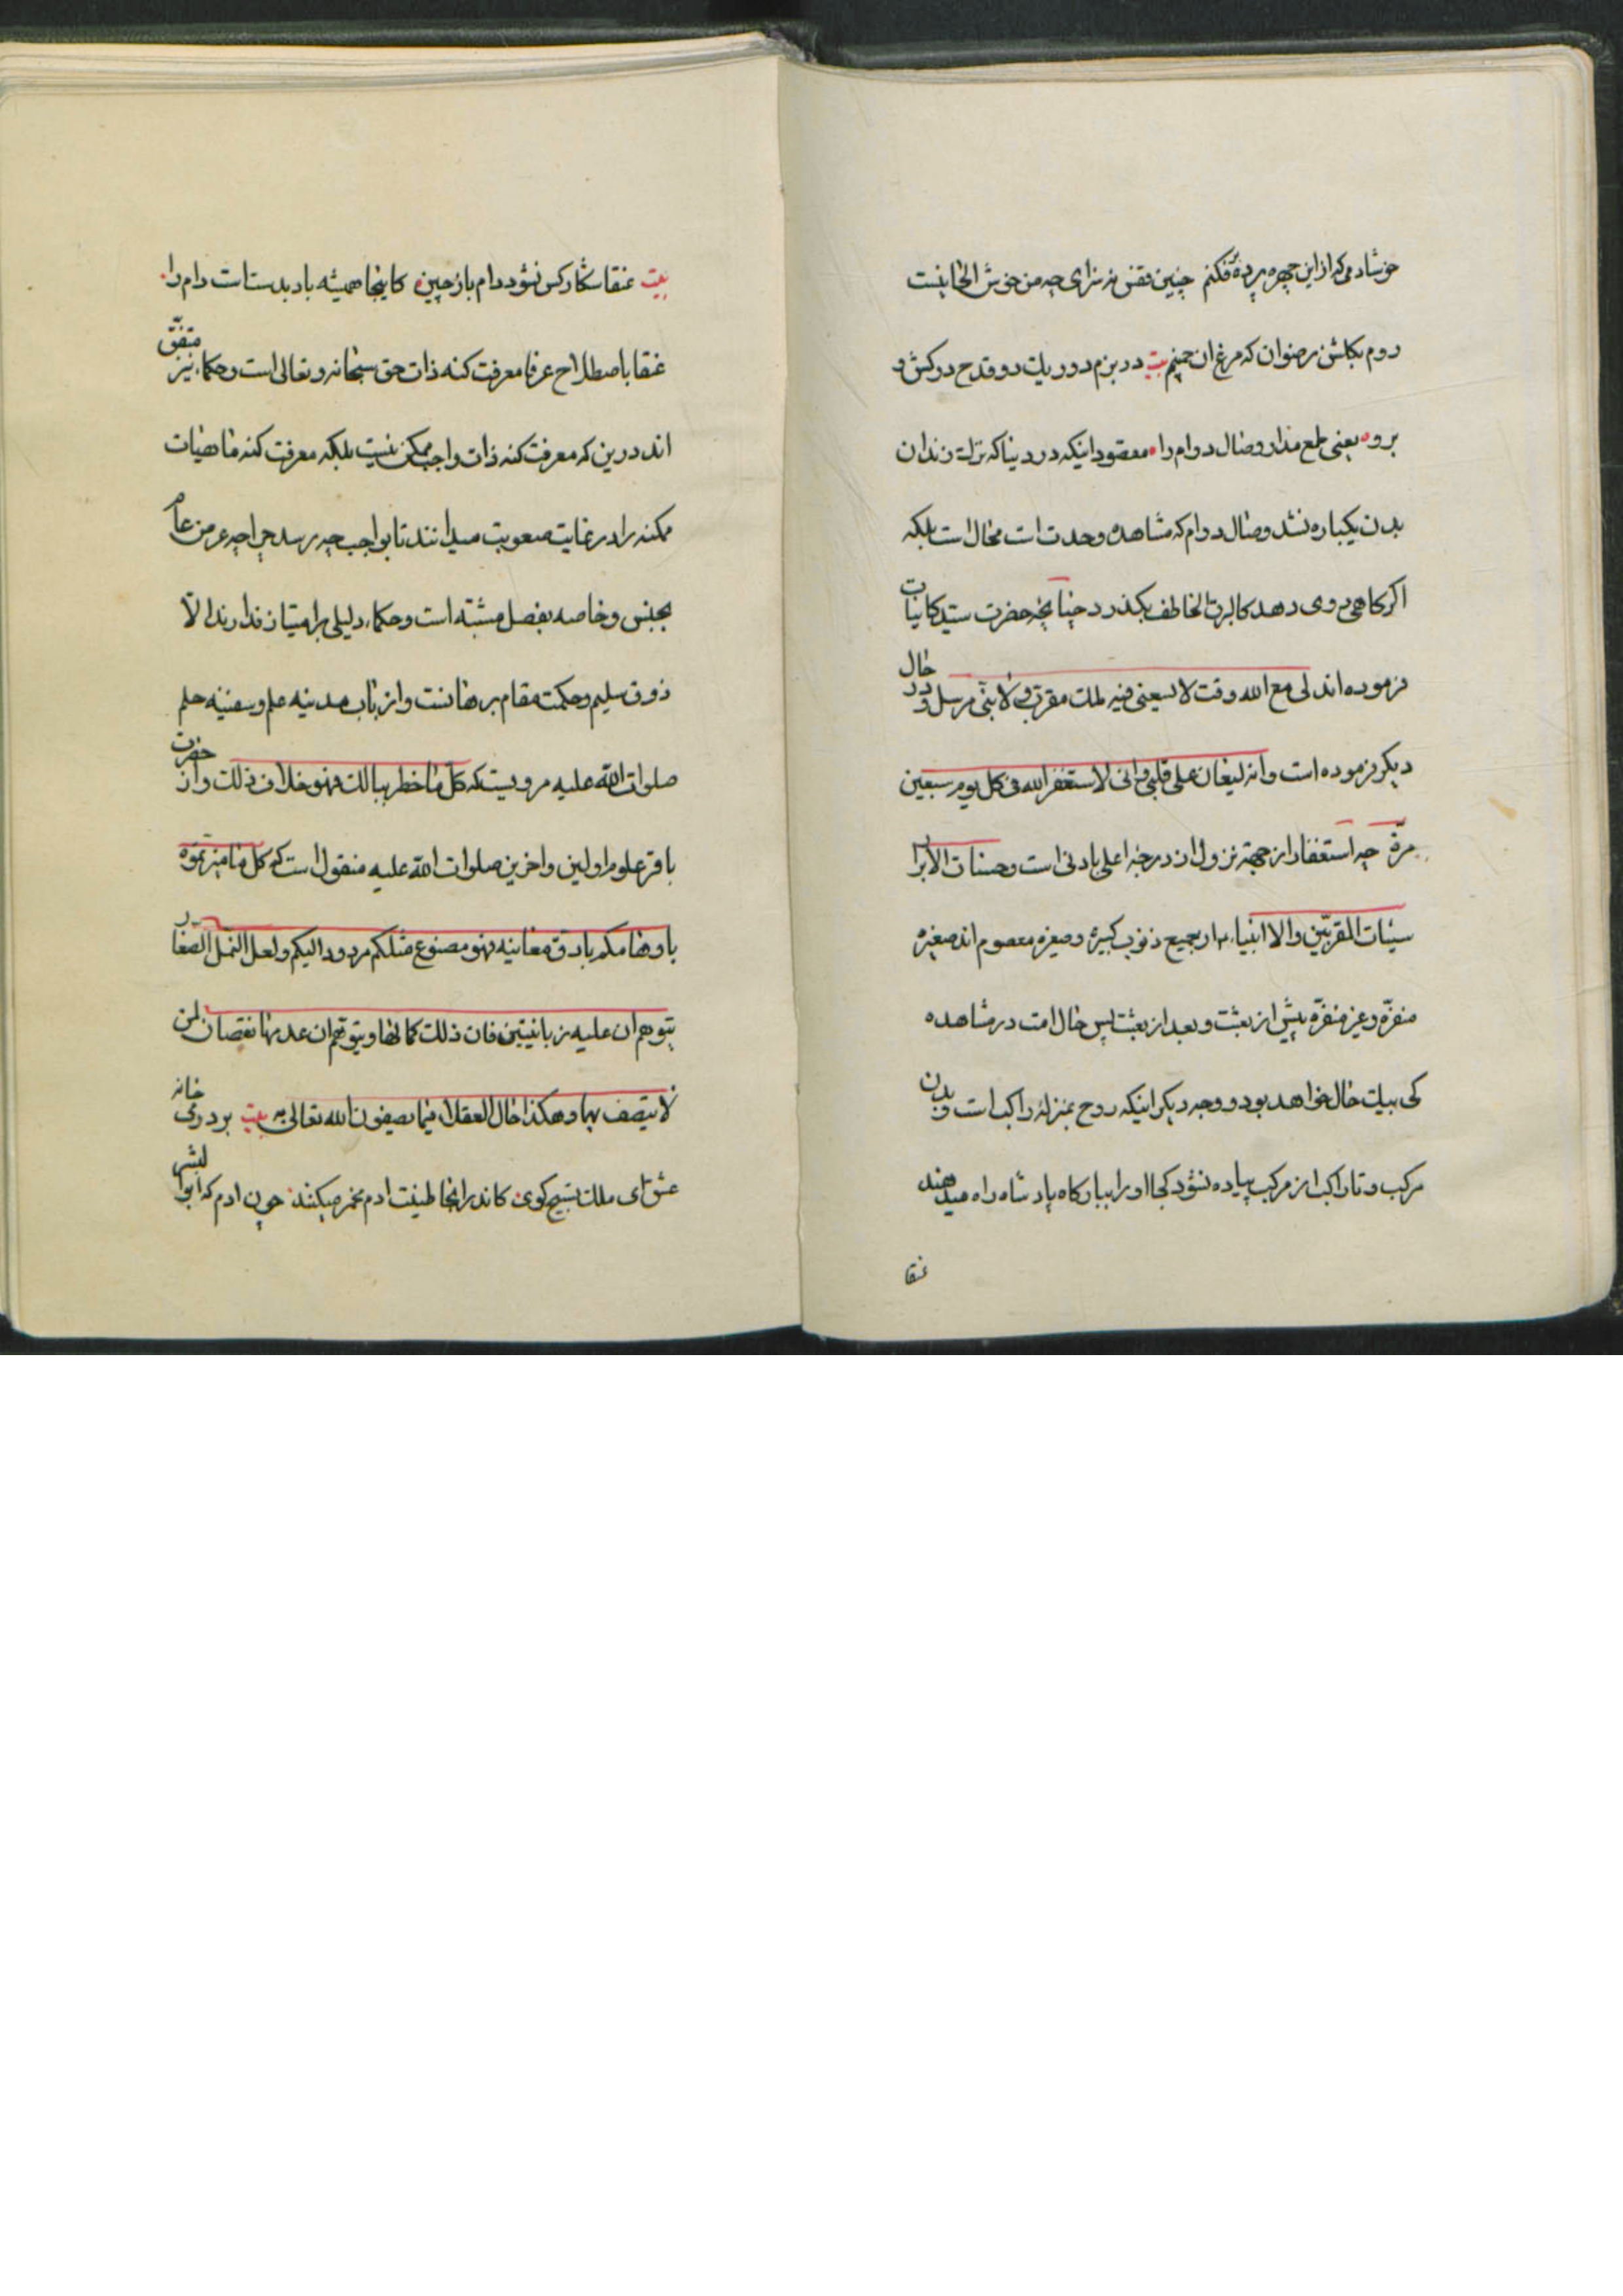 خوشا دمی که از این چهره پرده فکنم چنین قفس نه سزای چه من خوش الحانیست
روم بکلشن رضوان که مرغ ان چمنم بیت در بزم دور یك دو قدح درکش و
برو یعنی طمع مدار وصال دوام را مقصود اینکه در دنیا که ترك زندان
بدن یکباره نشد وصال دوام که مشاهده وحدت است محال است بلکه
اکر کاهی روی دهد کالبرق الخاطف بکذرد چنانچه حضرت سید کاینات
فرموده اند لی مع الله وقت لا یسعنی فیه ملك مقرب و لا نبی مرسل و در حال
دیکر فرموده است وانه لیغان علی قلبی وانی لاستغفر الله فی کل یوم سبعین
مرة چه استغفار از جهة نزول از درجه اعلی بادنی است وحسنات الابرار
سیئات المقربین والا انبیاء بجمیع ذنوب کبیره وصغیره معصوم اند صغیره
منفره وغیر منفره پیش از بعثت وبعد از بعثت پس حال امت در مشاهده
کی بیك حال خواهد بود و وجه دیکر اینکه روح بمنزله راکب است و بدن
مرکب و تا راکب از مرکب پیاده نشود کجا اورا ببارکاه پادشاه راه میدهند
عنقا
بیت عنقا شکار کس نشود دام باز چین کاینجا همیشه باد بدست است دام را
عنقا باصطلاح عرفا معرفت کنه ذات حق سبحانه وتعالی است وحکماء نیز متفق
اند درین که معرفت کنه ذات واجب ممکن نیست بلکه معرفت کنه ماهیات
ممکنه را در غایت صعوبت میدانند تا بواجب چه رسد چرا چه عرض عام
بجنس وخاصه بفصل مشتبه است وحکماء دلیلی بر امتیاز ندارند الا
ذوق سلیم وحکمت مقام برهانست واز باب مدینه علم وسفینه حلم
صلوات الله علیه مرویست که کل ما خطر ببالك فهو خلاف ذلك واز حضرت
باقر علوم اولین واخرین صلوات الله علیه منقول است که کل ما میزتموه
باوهامکم بادق معانیه فهو مصنوع مثلکم مردود الیکم ولعل النمل الصغار
یتوهم ان علیه زبانیتین فان ذلك کمالها ویتوهم ان عدمها نقصان لمن
لا یتصف بهما وهکذا حال العقلاء فیما یصفون الله تعالی به بیت بر در میخانه
عشق ای ملك تسبیح کوی کاندر انجا طینت ادم مخمر میکنند چون ادم که ابوا لبشر